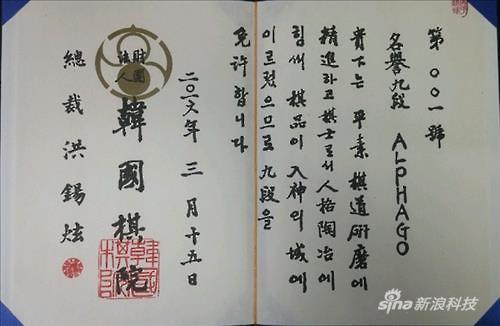 第〇〇一號
名譽九段 ALPHAGO
貴下는 平素 棋道硏磨에
精進하고 棋士로서 人格陶冶에
힘써 棋品이 入神의 域에
이르렀으므로 九段을
免許합니다
二〇一六年 三月十五日
財團法人 韓國棋院
總裁 洪錫炫
sina 新浪科技